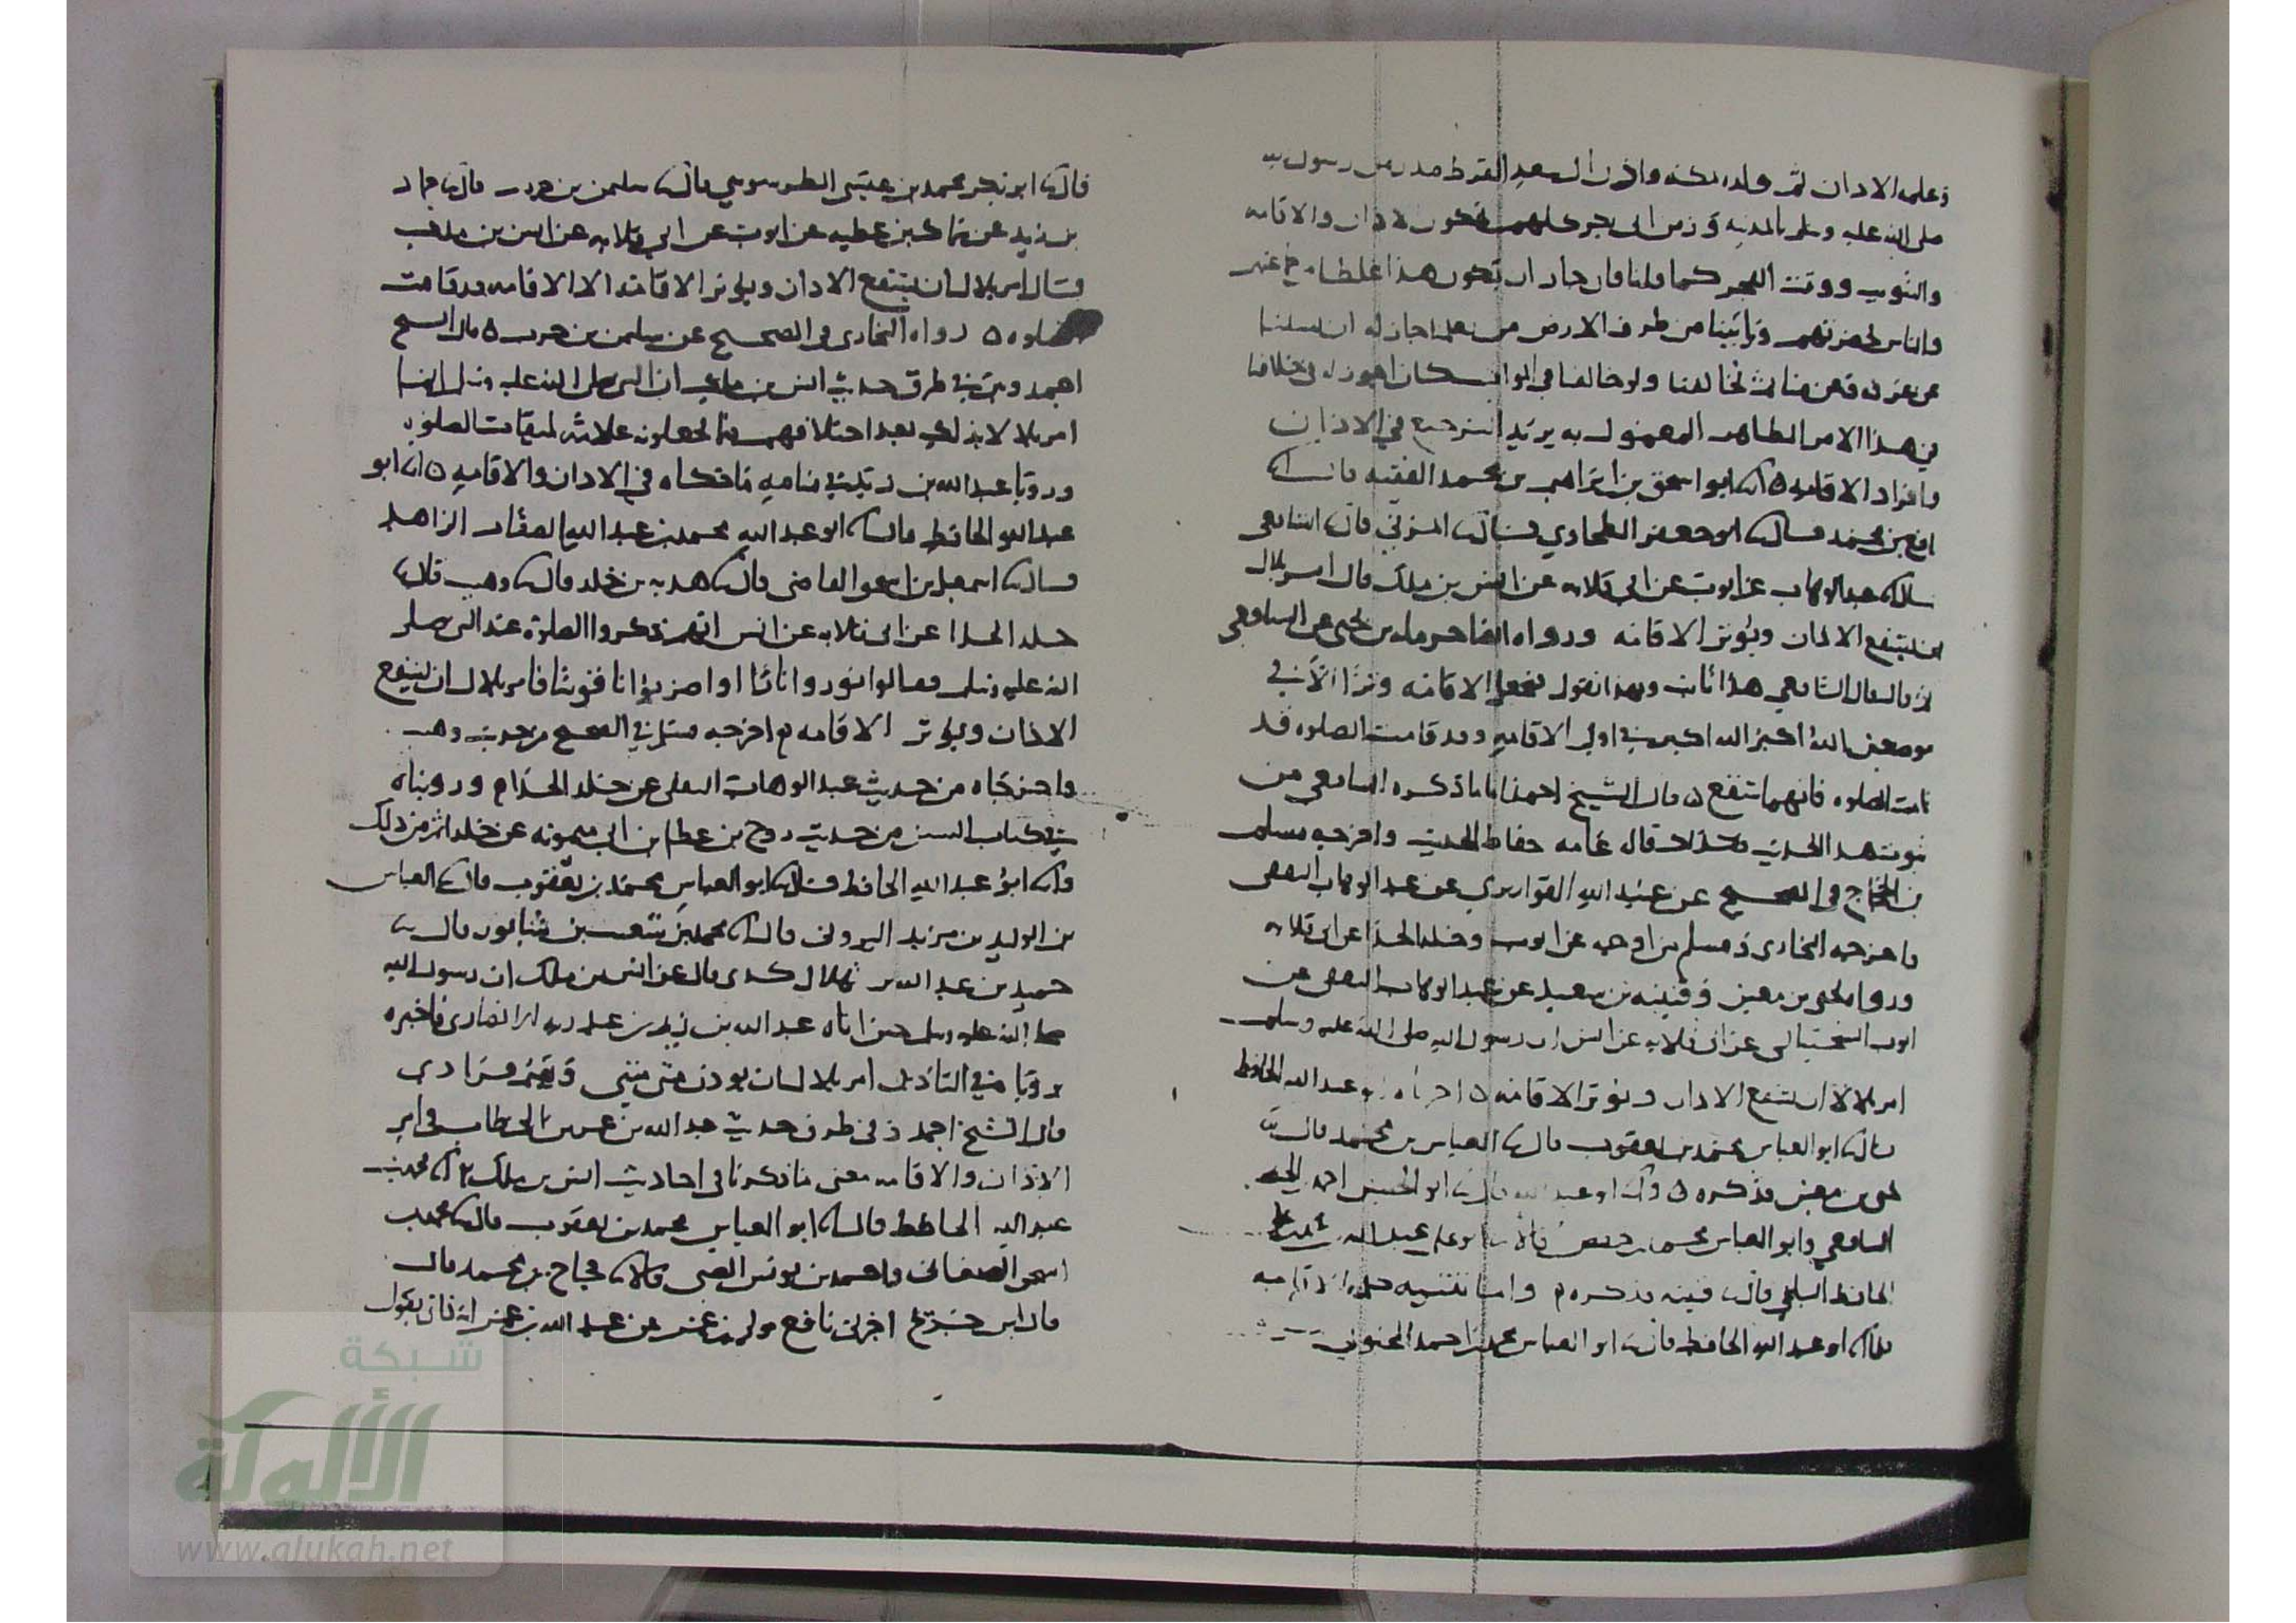 وعلمه الاذان ثم ولده بمكة واذن ال سعد القرظ منذ زمن رسول الله
صلى الله عليه وسلم بالمدينه وزمن ابى بكر كلهم يحكون الاذان والاقامه
والتثويب ووقت الفجر كما قلنا فان جاز ان يكون هذا غلطا من جماعتهم
والناس بحضرتهم وياتينا من طرف الارض من يعلمنا جاز له ان يسلنا
عن عرفه وعن منا ثم يخالفنا ولو خالفنا فى المواقيت كان اجوز له فى خلافنا
من هذا الامر الظاهر المعمول به يريد الترجيع في الاذان
وافراد الاقامه ه انا ابو اسحق بن ابراهيم بن محمد الفقيه قال انا
بن محمد قال انا ابو جعفر الطحاوي قال المزني قال الشافعى
قال عبد الوهاب عن ايوب عن ابى قلابه عن انس بن ملك قال امر بلال
ان يشفع الاذان ويوتر الاقامه ورواه ايضا حرمله بن يحيى عن الشافعى
قال الشافعي هذا ثابت وبهذا نقول نجعل الاقامه وترا الا في
موضعين الله اكبر الله اكبر في اول الاقامه وقد قامت الصلوه قد
قامت الصلوه فانهما شفع ه قال الشيخ احمد اما ما ذكره الشافعى من
ثبوت هذا الحديث فكذلك قال عامه حفاظ الحديث واخرجه مسلم
بن الحجاج فى الصحيح عن عبيد الله القواريري عن عبد الوهاب الثقفى
واخرجه البخارى ومسلم من اوجه عن ايوب وخلد الحذا عن ابى قلابه
ورواه يحيى بن معين وقتيبه بن سعيد عن عبد الوهاب الثقفى عن
ايوب السختيانى عن ابى قلابه عن انس ان رسول الله صلى الله عليه وسلم
امر بلالا ان يشفع الاذان ويوتر الاقامه ه اخبرناه ابو عبد الله الحافظ
قال ابو العباس محمد بن يعقوب قال العباس بن محمد قال
يحيى بن معين فذكره ه وانا ابو عبد الله قال ابو الحسين احمد
الشافعي وابو العباس محمد بن حفص قالا ابو على عبد الله بن محمد
الحافظ البلخي قال قتيبه فذكره م واما تثنيه كلمه الاقامه
فانا ابو عبد الله الحافظ قال ابو العباس محمد بن احمد المحبوبي
قال ابو بكر محمد بن عيسى الطرسوسي قال سليمن بن حرب قال حماد
بن زيد عن سماك بن عطيه عن ايوب عن ابي قلابه عن انس بن ملك
قال امر بلال ان يشفع الاذان ويوتر الاقامه الا الاقامه قد قامت
الصلوه ه رواه البخارى في الصحيح عن سليمن بن حرب ه قال الشيخ
احمد وبين في طرق حديث انس بن ملك ان النبي صلى الله عليه وسلم انما
امر بلالا بذلك بعد اختلافهم فيما يجعلونه علامة لميقات الصلوه
ورويا عبد الله بن زيد في منامه ما حكاه في الاذان والاقامه ه انا ابو
عبد الله الحافظ قال ابو عبد الله محمد بن عبد الله الصفار الزاهد
قال اسمعيل بن اسحق القاضى قال هدبه بن خلد قال وهيب قال
خلد الحذا عن ابى قلابه عن انس انهم ذكروا الصلوة عند النبي صلى
الله عليه وسلم فقالوا نوروا نارا او اضربوا ناقوسا فامر بلال ان يشفع
الاذان ويوتر الاقامه م اخرجه مسلم في الصحيح من حديث وهيب
واخرجاه من حديث عبد الوهاب الثقفى عن خلد الحذا م ورويناه
في كتاب السنن من حديث روح بن عطا بن ابى ميمونه عن خلد اتم من ذلك
وانا ابو عبد الله الحافظ قال ابو العباس محمد بن يعقوب قال العباس
بن الوليد بن مزيد البيروتى قال محمد بن شعيب بن شابور قال
حميد بن عبد الله بن هلال قال عن انس بن ملك ان رسول الله
صلى الله عليه وسلم حين اتاه عبد الله بن زيد بن عبد ربه الانصارى فاخبره
رويا في التاذين امر بلالا ان يوذن مثنى مثنى ويقيم فرادى
قال الشيخ احمد وفى طرق حديث عبد الله بن عمر بن الخطاب فى امر
الاذان والاقامه معنى ما ذكرنا فى احاديث انس بن ملك انا محمد بن
عبد الله الحافظ قال ابو العباس محمد بن يعقوب قال محمد بن
اسحق الصغانى واحمد بن يونس الضبى قالا حجاج بن محمد قال
قال ابن جريج اخبرنى نافع مولى بن عمر عن عبد الله بن عمر انه كان يقول
شبكة
الألوكة
www.alukah.net